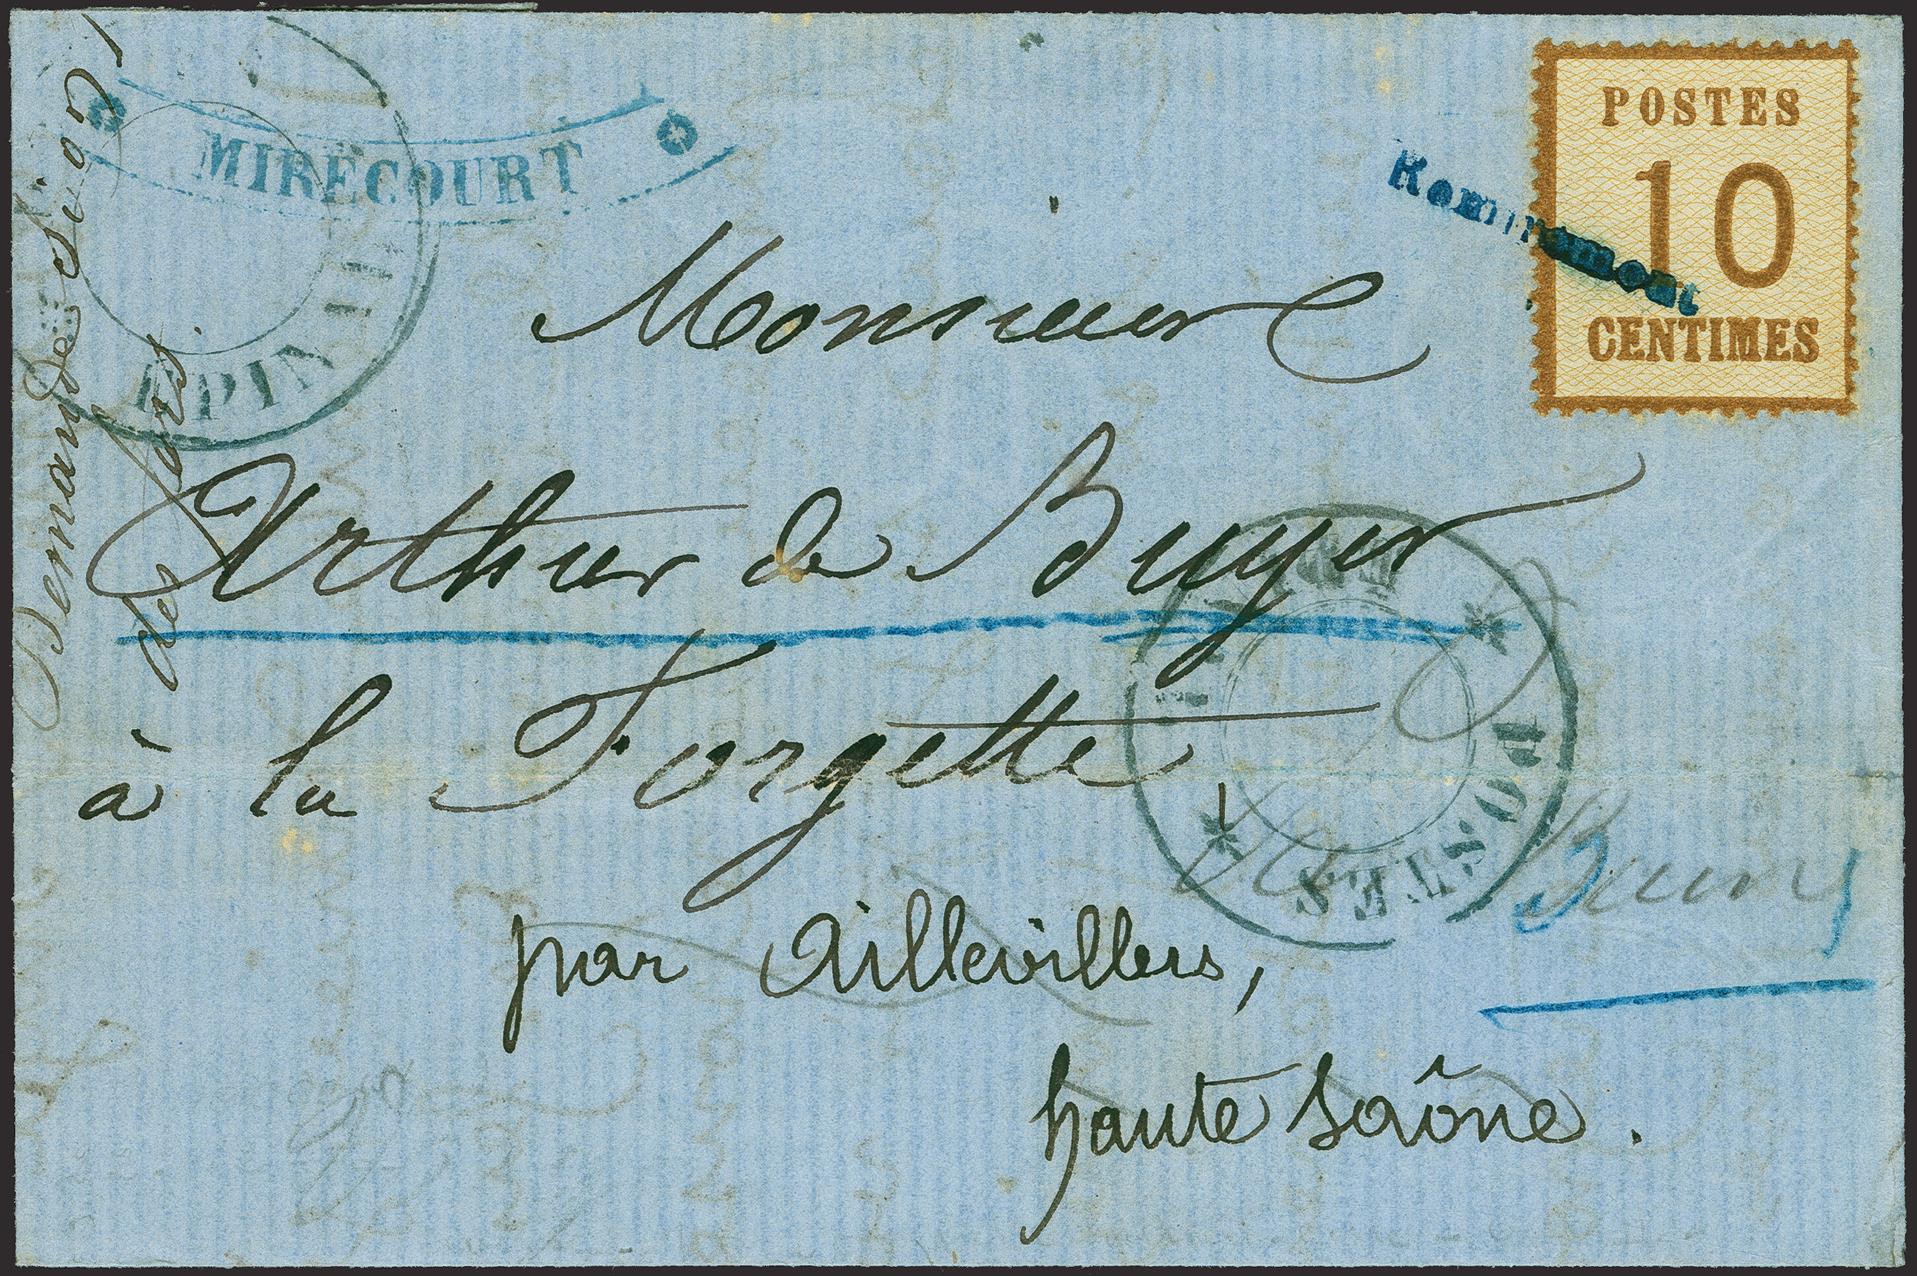 MIRECOURT
EPINAL
POSTES
10
CENTIMES
Remiremont
Monsieur
Arthur de Buyer
à la Forgette,
par Aillevillers,
haute Saône.
POSTES
Bains
Demande
des